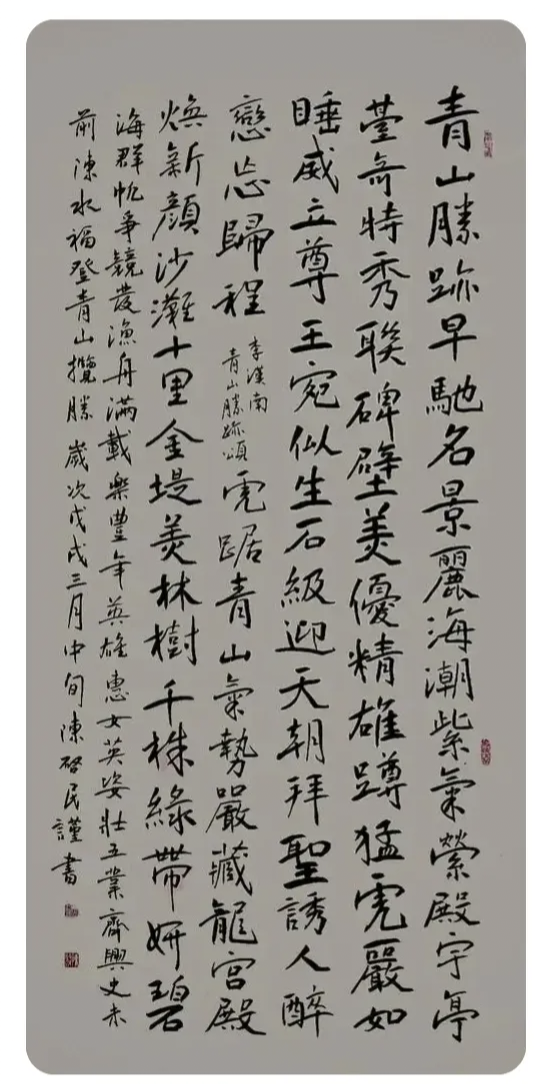 青山勝跡早馳名景麗海潮紫氣縈殿宇亭
臺奇特秀聯碑壁美優精雄蹲猛虎嚴如
睡威立尊王宛似生石級迎天朝拜聖誘人醉
戀忘歸程
李漢南
青山勝跡頌
虎踞青山氣勢嚴藏龍宮殿
煥新顏沙灘十里金堤美林樹千株綠帶妍碧
海群帆爭競發漁舟滿載樂豐年英雄惠女英姿壯五業齊興史未
前陳水福登青山攬勝歲次戊戌三月中旬陳啓民謹書